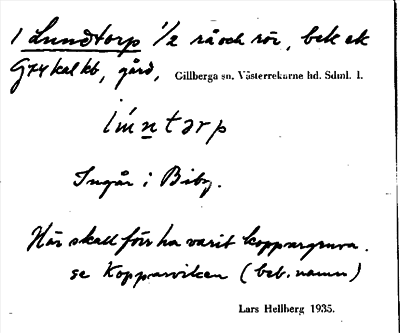 1 Lundtorp 1/2 rå och rör, bek ek
G74 kal kb, gård, Gillberga sn. Västerrekarne hd. Sdml. l.
Ingår i Biby.
Här skall förr ha varit koppargruva.
se Kopparviken (beb.namn)
Lars Hellberg 1935.